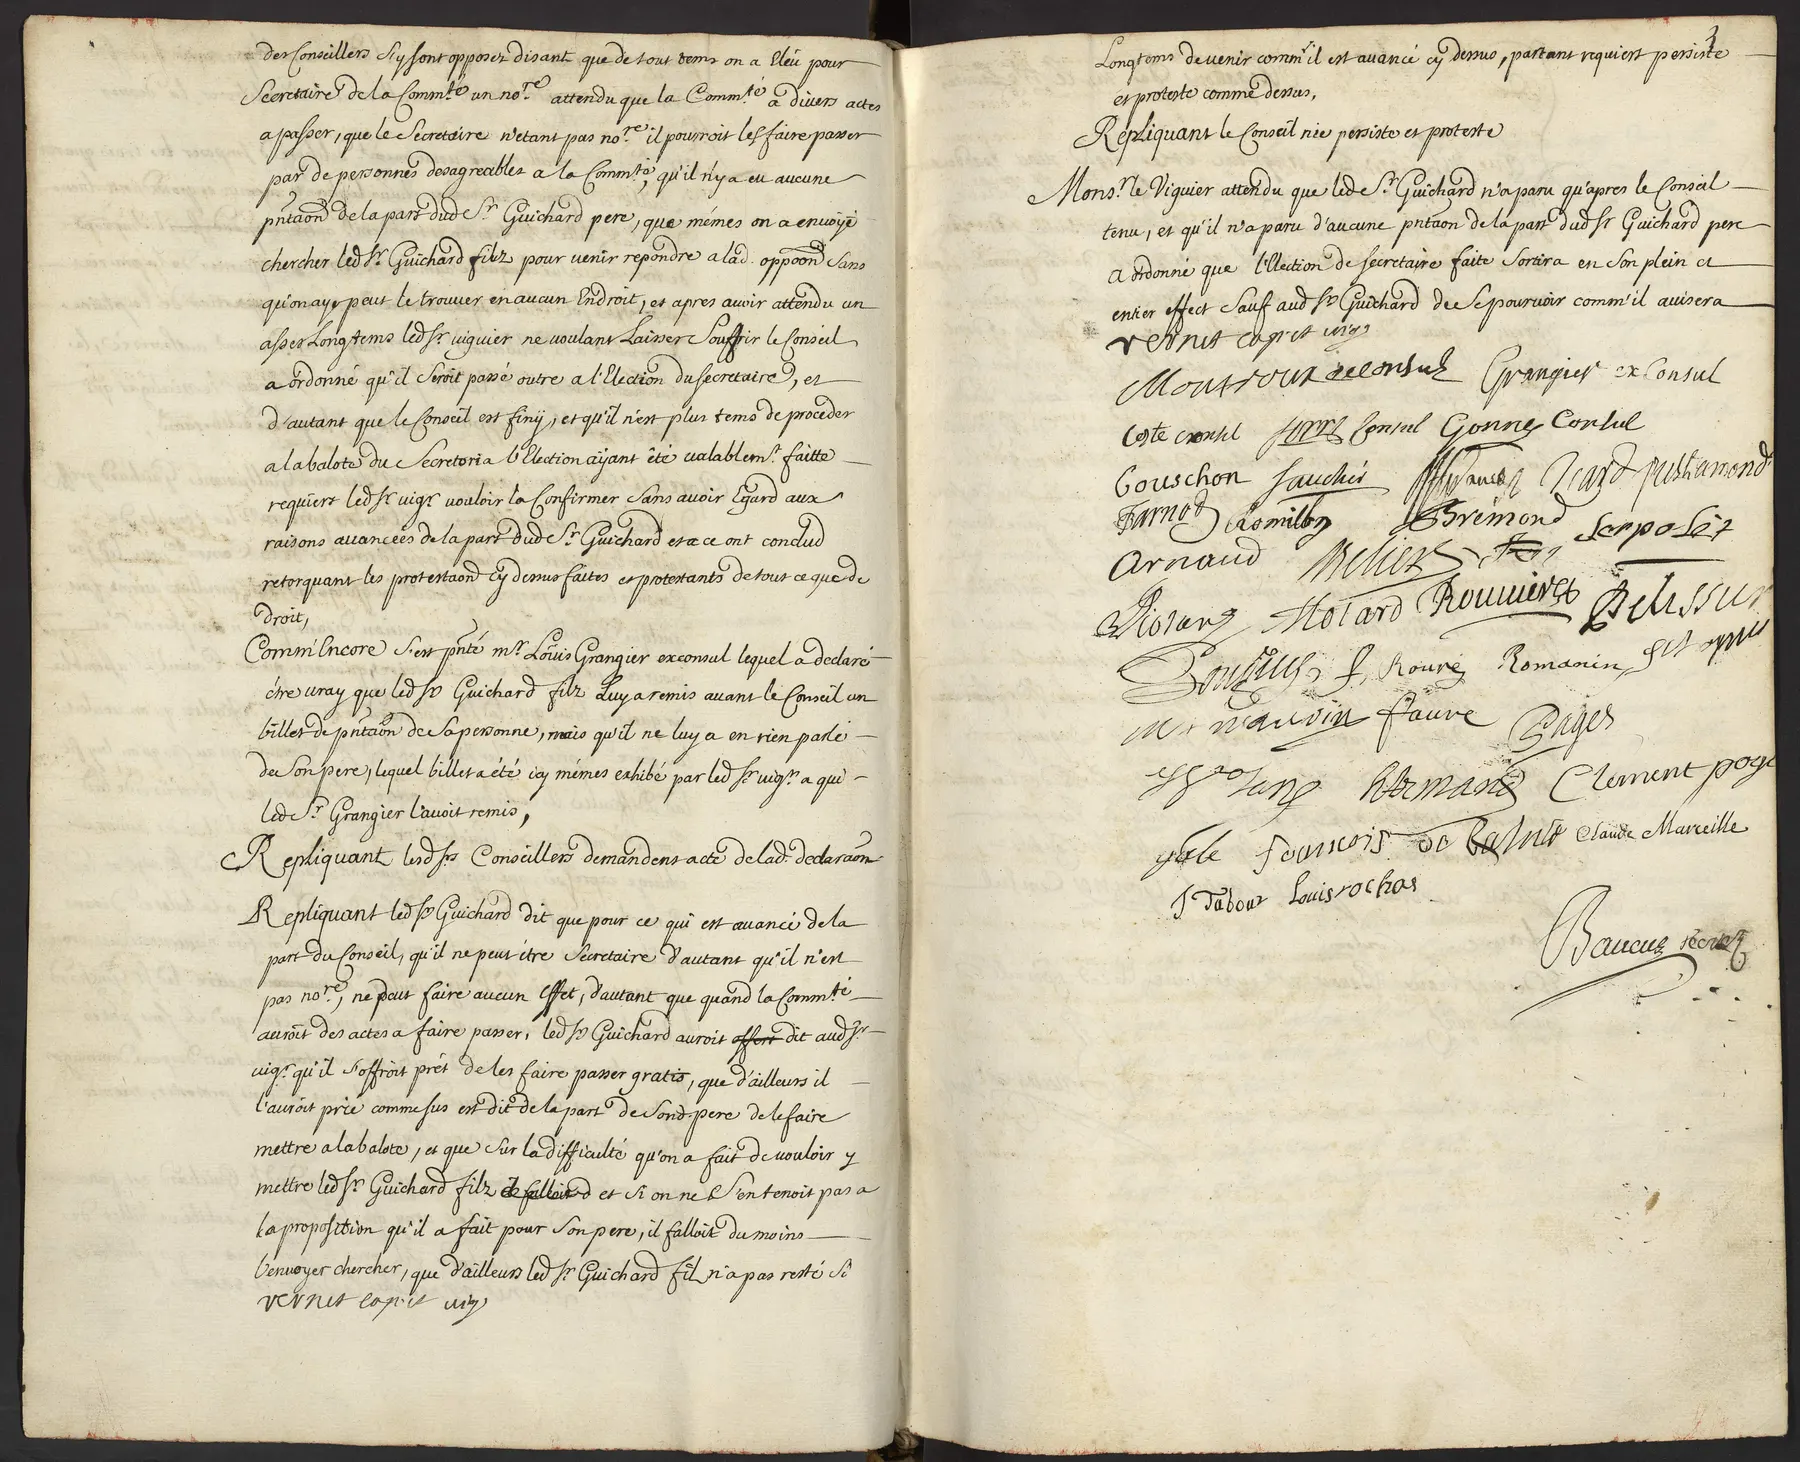 des Conseillers s'y sont opposez disant que de tout tems on a Eleu pour
Secretaire de la Comm.té un no.re attendu que la Comm.té a divers actes
a passer, que le Secretaire n'etant pas no.re il pourroit les faire passer
par de personnes desagreables a la Comm.té, qu'il n'y a eu aucune
pntaon de la part dud S.r Guichard pere, que mémes on a envoÿé
chercher led S.r Guichard filz pour venir repondre a lad. oppoon Sans
qu'on aye peut le trouver en aucun Endroit, et apres avoir attendu un
asses Longtems led S.r viguier ne voulant Laisser Souffrir le Conseil
a ordonné qu'il Seroit passé outre a l'Election du secretaire, et
d'autant que le Conseil est finÿ, et qu'il n'est plus tems de proceder
a la balote du Secretoria l'Election aÿant été valablem.t faitte
requiert led S.r vig.r vouloir la Confirmer Sans avoir Egard aux
raisons avancées de la part dud S.r Guichard et a ce ont conclud
retorquant les protestaons cy dessus faites et protestants de tout ce que de
droit,
Comm'Encore S'est pnté m.r Loüis Grangier exconsul lequel a declaré
étre vray que led S.r Guichard filz Luy a remis avant le Conseil un
billet de pntaon de Sa personne, mais qu'il ne luy a en rien parlé
de Son pere, lequel billet a été icy mémes exhibé par led S.r vig.r a qui
led S.r Grangier l'avoit remis,
Repliquant lesd S.rs Conseillers demandent acte de lad. declaraon
Repliquant led S.r Guichard dit que pour ce qui est avancé de la
part du Conseil, qu'il ne peut étre Secretaire d'autant qu'il n'est
pas no.re, ne peut faire aucun effet, d'autant que quand la Comm.té
auroit des actes a faire passer, led S.r Guichard auroit offert dit aud S.r
vig.r qu'il S'offroit prét de les faire passer gratis, que d'ailleurs il
l'auroit prié comme sus est dit de la part de Sond. pere de le faire
mettre a la balote, et que Sur la difficulté qu'on a fait de vouloir y
mettre led S.r Guichard filz il falloit et Si on ne S'en tenoit pas a
la proposition qu'il a fait pour Son pere, il falloit du moins
l'envoyer chercher, que d'ailleurs led S.r Guichard fil n'a pas resté Si
vernet cap.e et vig
3
Longtems de venir comm'il est avancé cy dessus, partant requiert persiste
et proteste comme dessus,
Repliquant le Conseil nie persiste et proteste
Mons.r le Viguier attendu que led S.r Guichard n'a paru qu'apres le Conseil
tenu, et qu'il n'a paru d'aucune pntaon de la part dud S.r Guichard pere
a ordonné que l'Election de secretaire faite Sortira en Son plein et
entier effect Sauf aud S.r Guichard de Se pourvoir comm'il avisera
vernet cap.e et vig
Moutroux Grangier exConsul
Coste consul Consul Gonnes Consul
Gouschon fauchér
farnod Romillon Brémond Serpolet
Arnaud
Motard Rouuiere Pelissier
f. Rouré Romanin
fauré Pages
Armand Clement poge
yule francois Claude Marceille
J Tabour Louis rochas